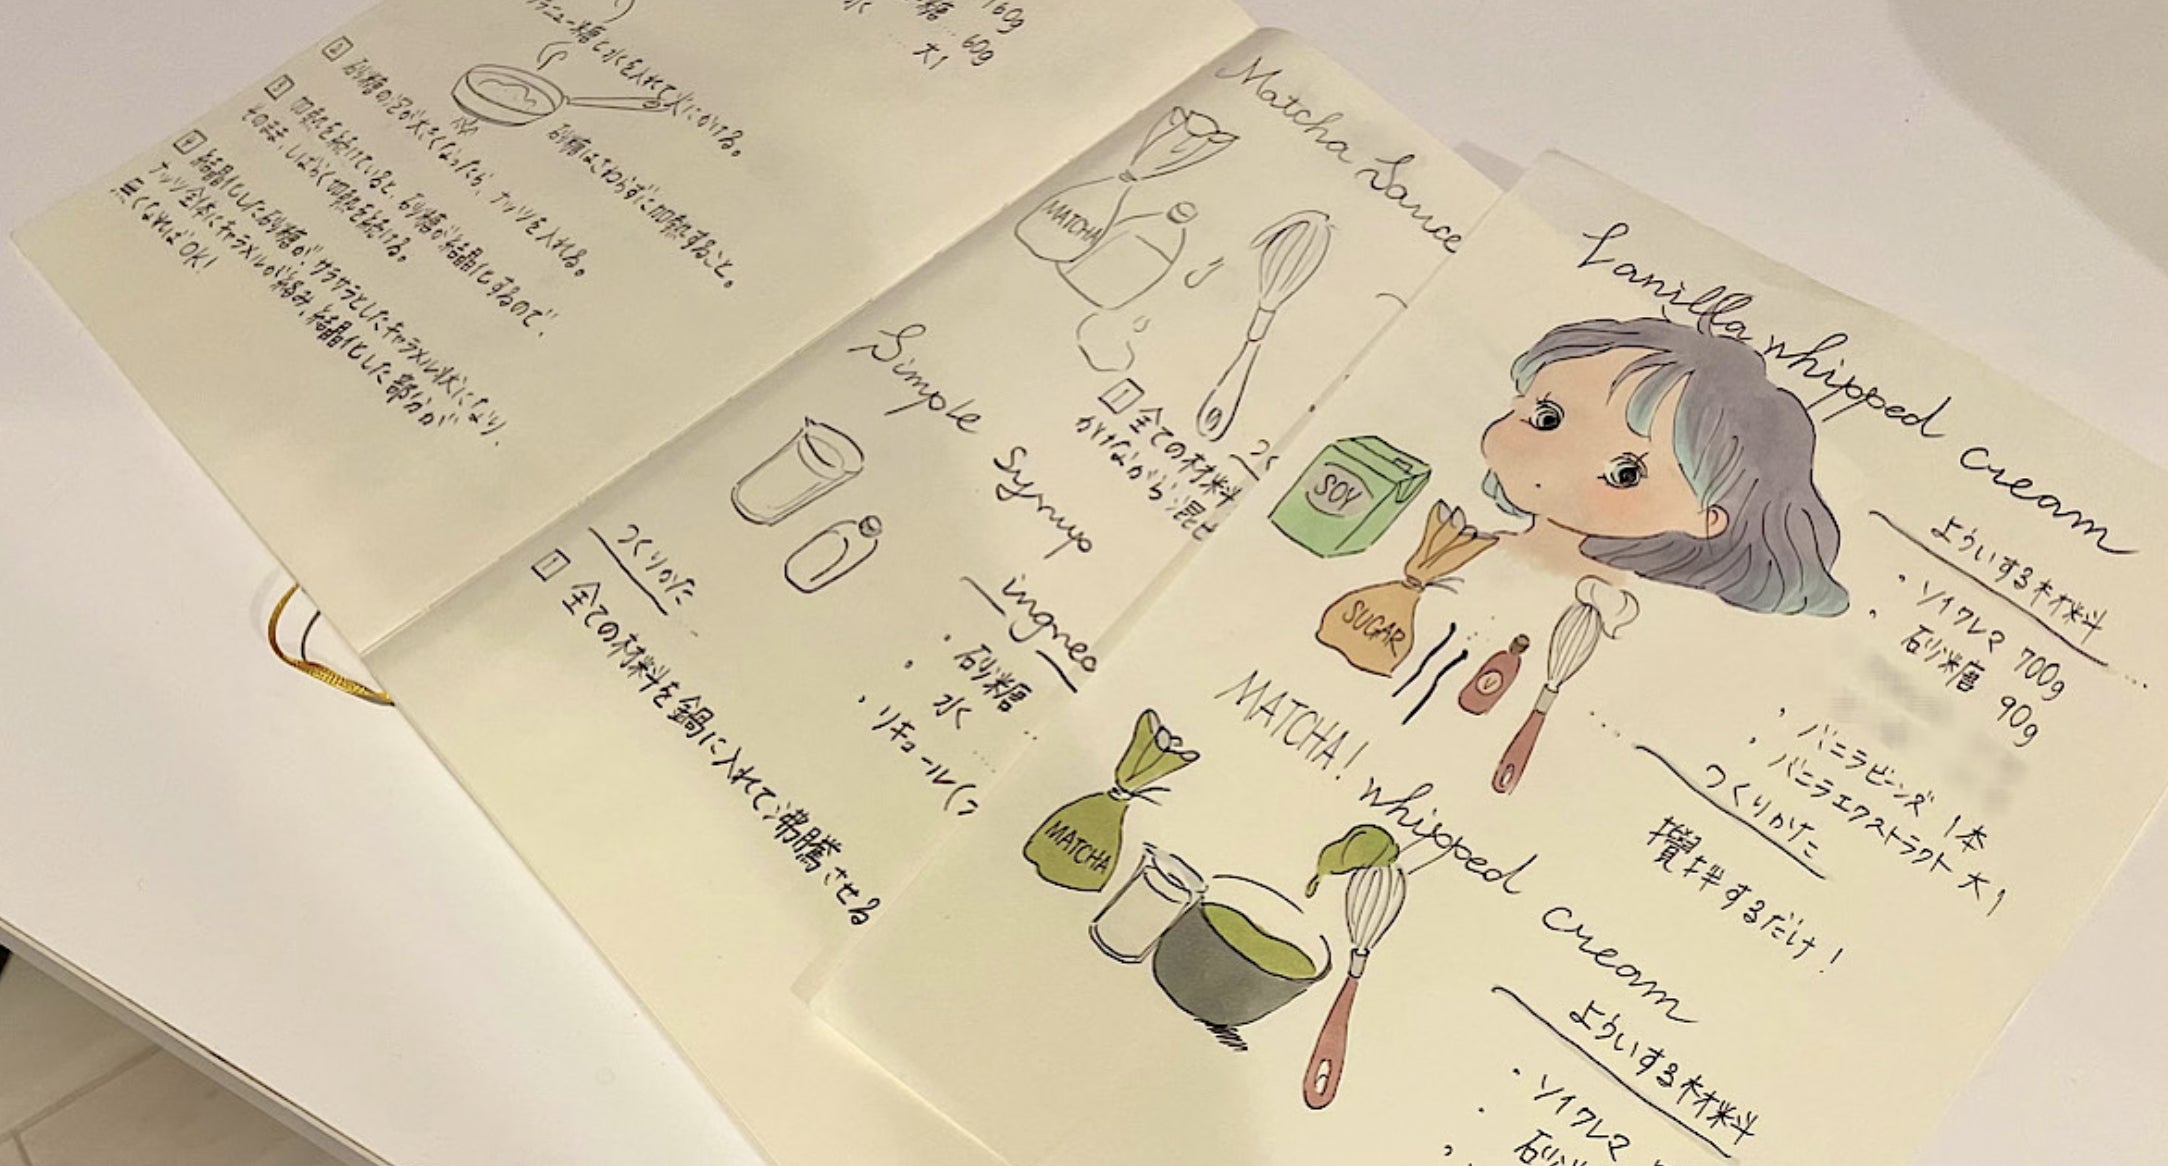 グラニュー糖と水を入れて火にかける。
160g
糖 60g
水 大1
砂糖はさわらずに加熱すること。
2 砂糖の泡が大きくなったら、ナッツを入れる。
3 加熱を続けていると、砂糖が結晶化するので、
そのまま、しばらく加熱を続ける。
4 結晶化した砂糖がサラサラとしたキャラメル状になり、
ナッツ全体にキャラメルが絡み、結晶化した部分が
無くなればOK!
Matcha Sauce
MATCHA
つく
1 全ての材料
かけながら混ぜ
Simple Syrup
ingre
・砂糖
・水
・リキュール(
つくりかた
1 全ての材料を鍋に入れて沸騰させる
Vanilla whipped cream
SOY
SUGAR
V
よういする材料
・ソイクレマ 700g
・砂糖 90g
・バニラビーンズ 1本
・バニラエクストラクト 大1
つくりかた
攪拌するだけ!
MATCHA! whipped cream
MATCHA
よういする材料
・ソイクレマ
・砂糖